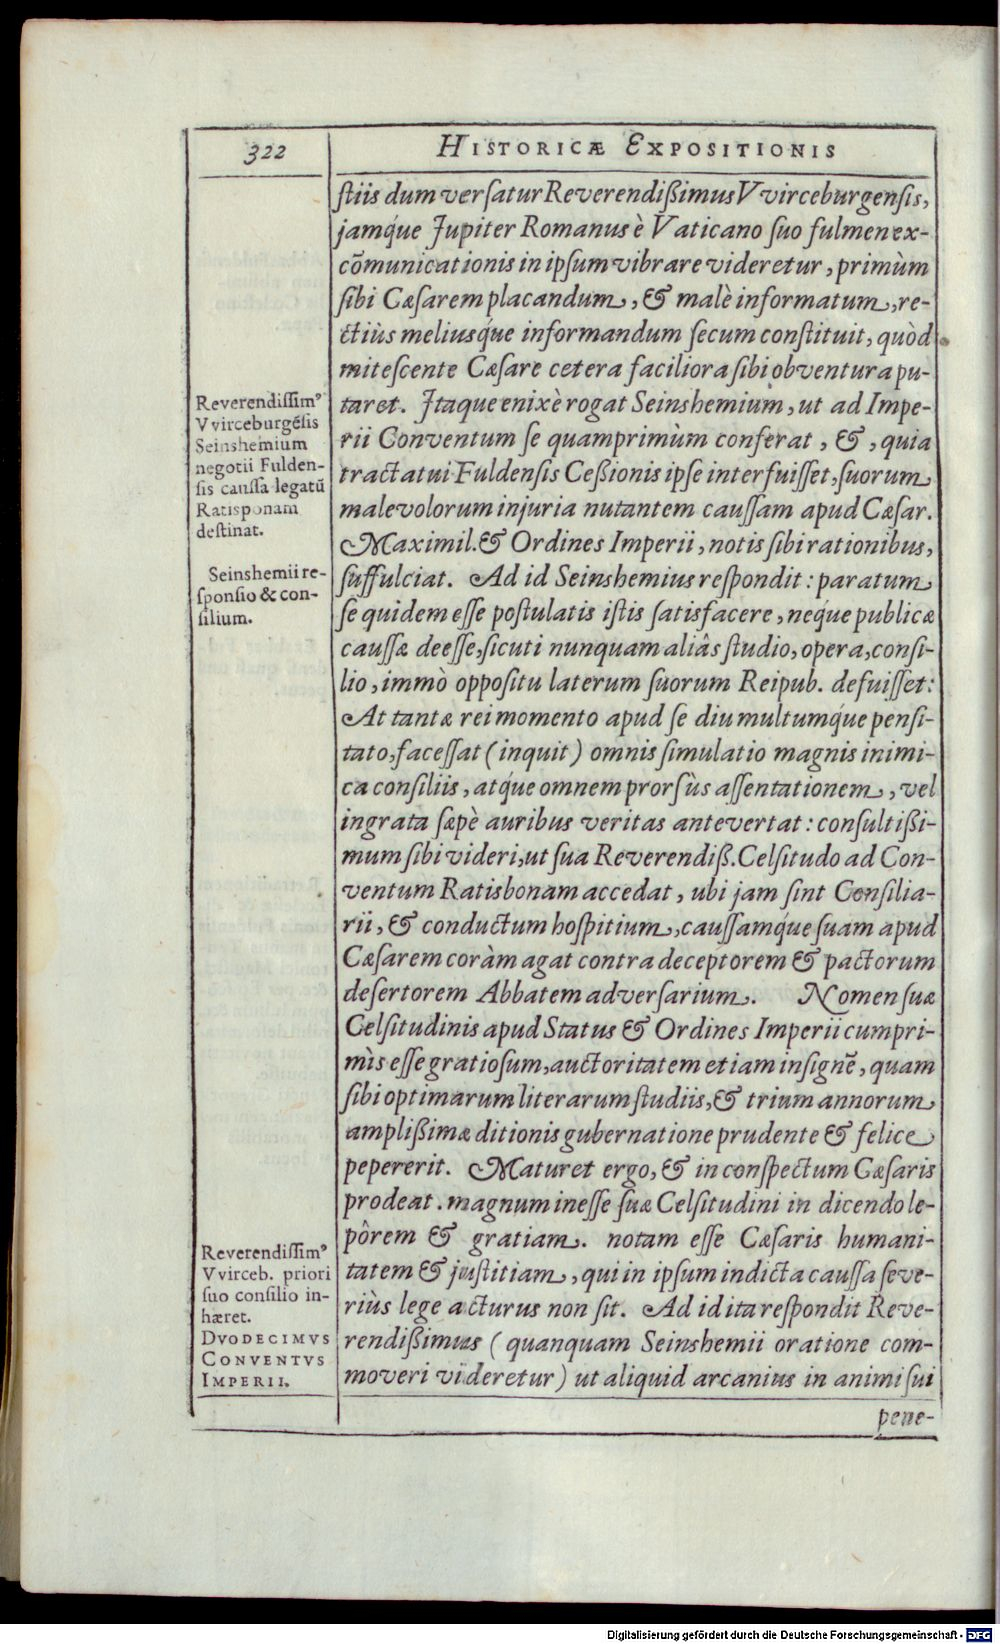 322
HISTORICÆ EXPOSITIONIS
ſtiis dum verſatur Reverendißimus Vvirceburgenſis,
jamq́ue Jupiter Romanus è Vaticano ſuo fulmen ex-
cõmunicationis in ipſum vibrare videretur, primùm
ſibi Cæſarem placandum, & malè informatum, re-
ctiùs meliusq́ue informandum ſecum conſtituit, quòd
miteſcente Cæſare cetera faciliora ſibi obventura pu-
taret. Itaque enixè rogat Seinshemium, ut ad Impe-
rii Conventum ſe quamprimùm conferat, &, quia
tractatui Fuldenſis Ceßionis ipſe interfuiſſet, ſuorum
malevolorum injuria nutantem cauſſam apud Cæſar.
Maximil. & Ordines Imperii, notis ſibi rationibus,
ſuffulciat. Ad id Seinshemius reſpondit: paratum
ſe quidem eſſe poſtulatis iſtis ſatisfacere, neq́ue publicæ
cauſſæ deeſſe, ſicuti nunquam aliâs ſtudio, opera, conſi-
lio, immò oppoſitu laterum ſuorum Reipub. defuiſſet:
At tantæ rei momento apud ſe diu multumq́ue penſi-
tato, faceſſat (inquit) omnis ſimulatio magnis inimi-
ca conſiliis, atq́ue omnem prorſùs aſſentationem, vel
ingrata ſæpè auribus veritas antevertat: conſultißi-
mum ſibi videri, ut ſua Reverendiß. Celſitudo ad Con-
ventum Ratisbonam accedat, ubi jam ſint Conſilia-
rii, & conductum hoſpitium, cauſſamq́ue ſuam apud
Cæſarem coràm agat contra deceptorem & pactorum
deſertorem Abbatem adverſarium. Nomen ſuæ
Celſitudinis apud Status & Ordines Imperii cumpri-
mìs eſſe gratioſum, auctoritatem etiam inſignẽ, quam
ſibi optimarum literarum ſtudiis, & trium annorum
amplißimæ ditionis gubernatione prudente & felice
pepererit. Maturet ergo, & in conſpectum Cæſaris
prodeat. magnum ineſſe ſuæ Celſitudini in dicendo le-
pôrem & gratiam. notam eſſe Cæſaris humani-
tatem & juſtitiam, qui in ipſum indicta cauſſa ſeve-
riùs lege acturus non ſit. Ad id ita reſpondit Reve-
rendißimus (quanquam Seinshemii oratione com-
moveri videretur) ut aliquid arcanius in animi ſui
pene-
Reverendiſſimꝰ
Vvirceburgẽſis
Seinshemium
negotii Fulden-
ſis cauſſa legatũ
Ratisponam
deſtinat.
Seinshemii re-
ſponſio & con-
ſilium.
Reverendiſſimꝰ
Vvirceb. priori
ſuo conſilio in-
hæret.
DVODECIMVS
CONVENTVS
IMPERII.
Digitalisierung gefördert durch die Deutsche Forschungsgemeinschaft - DFG